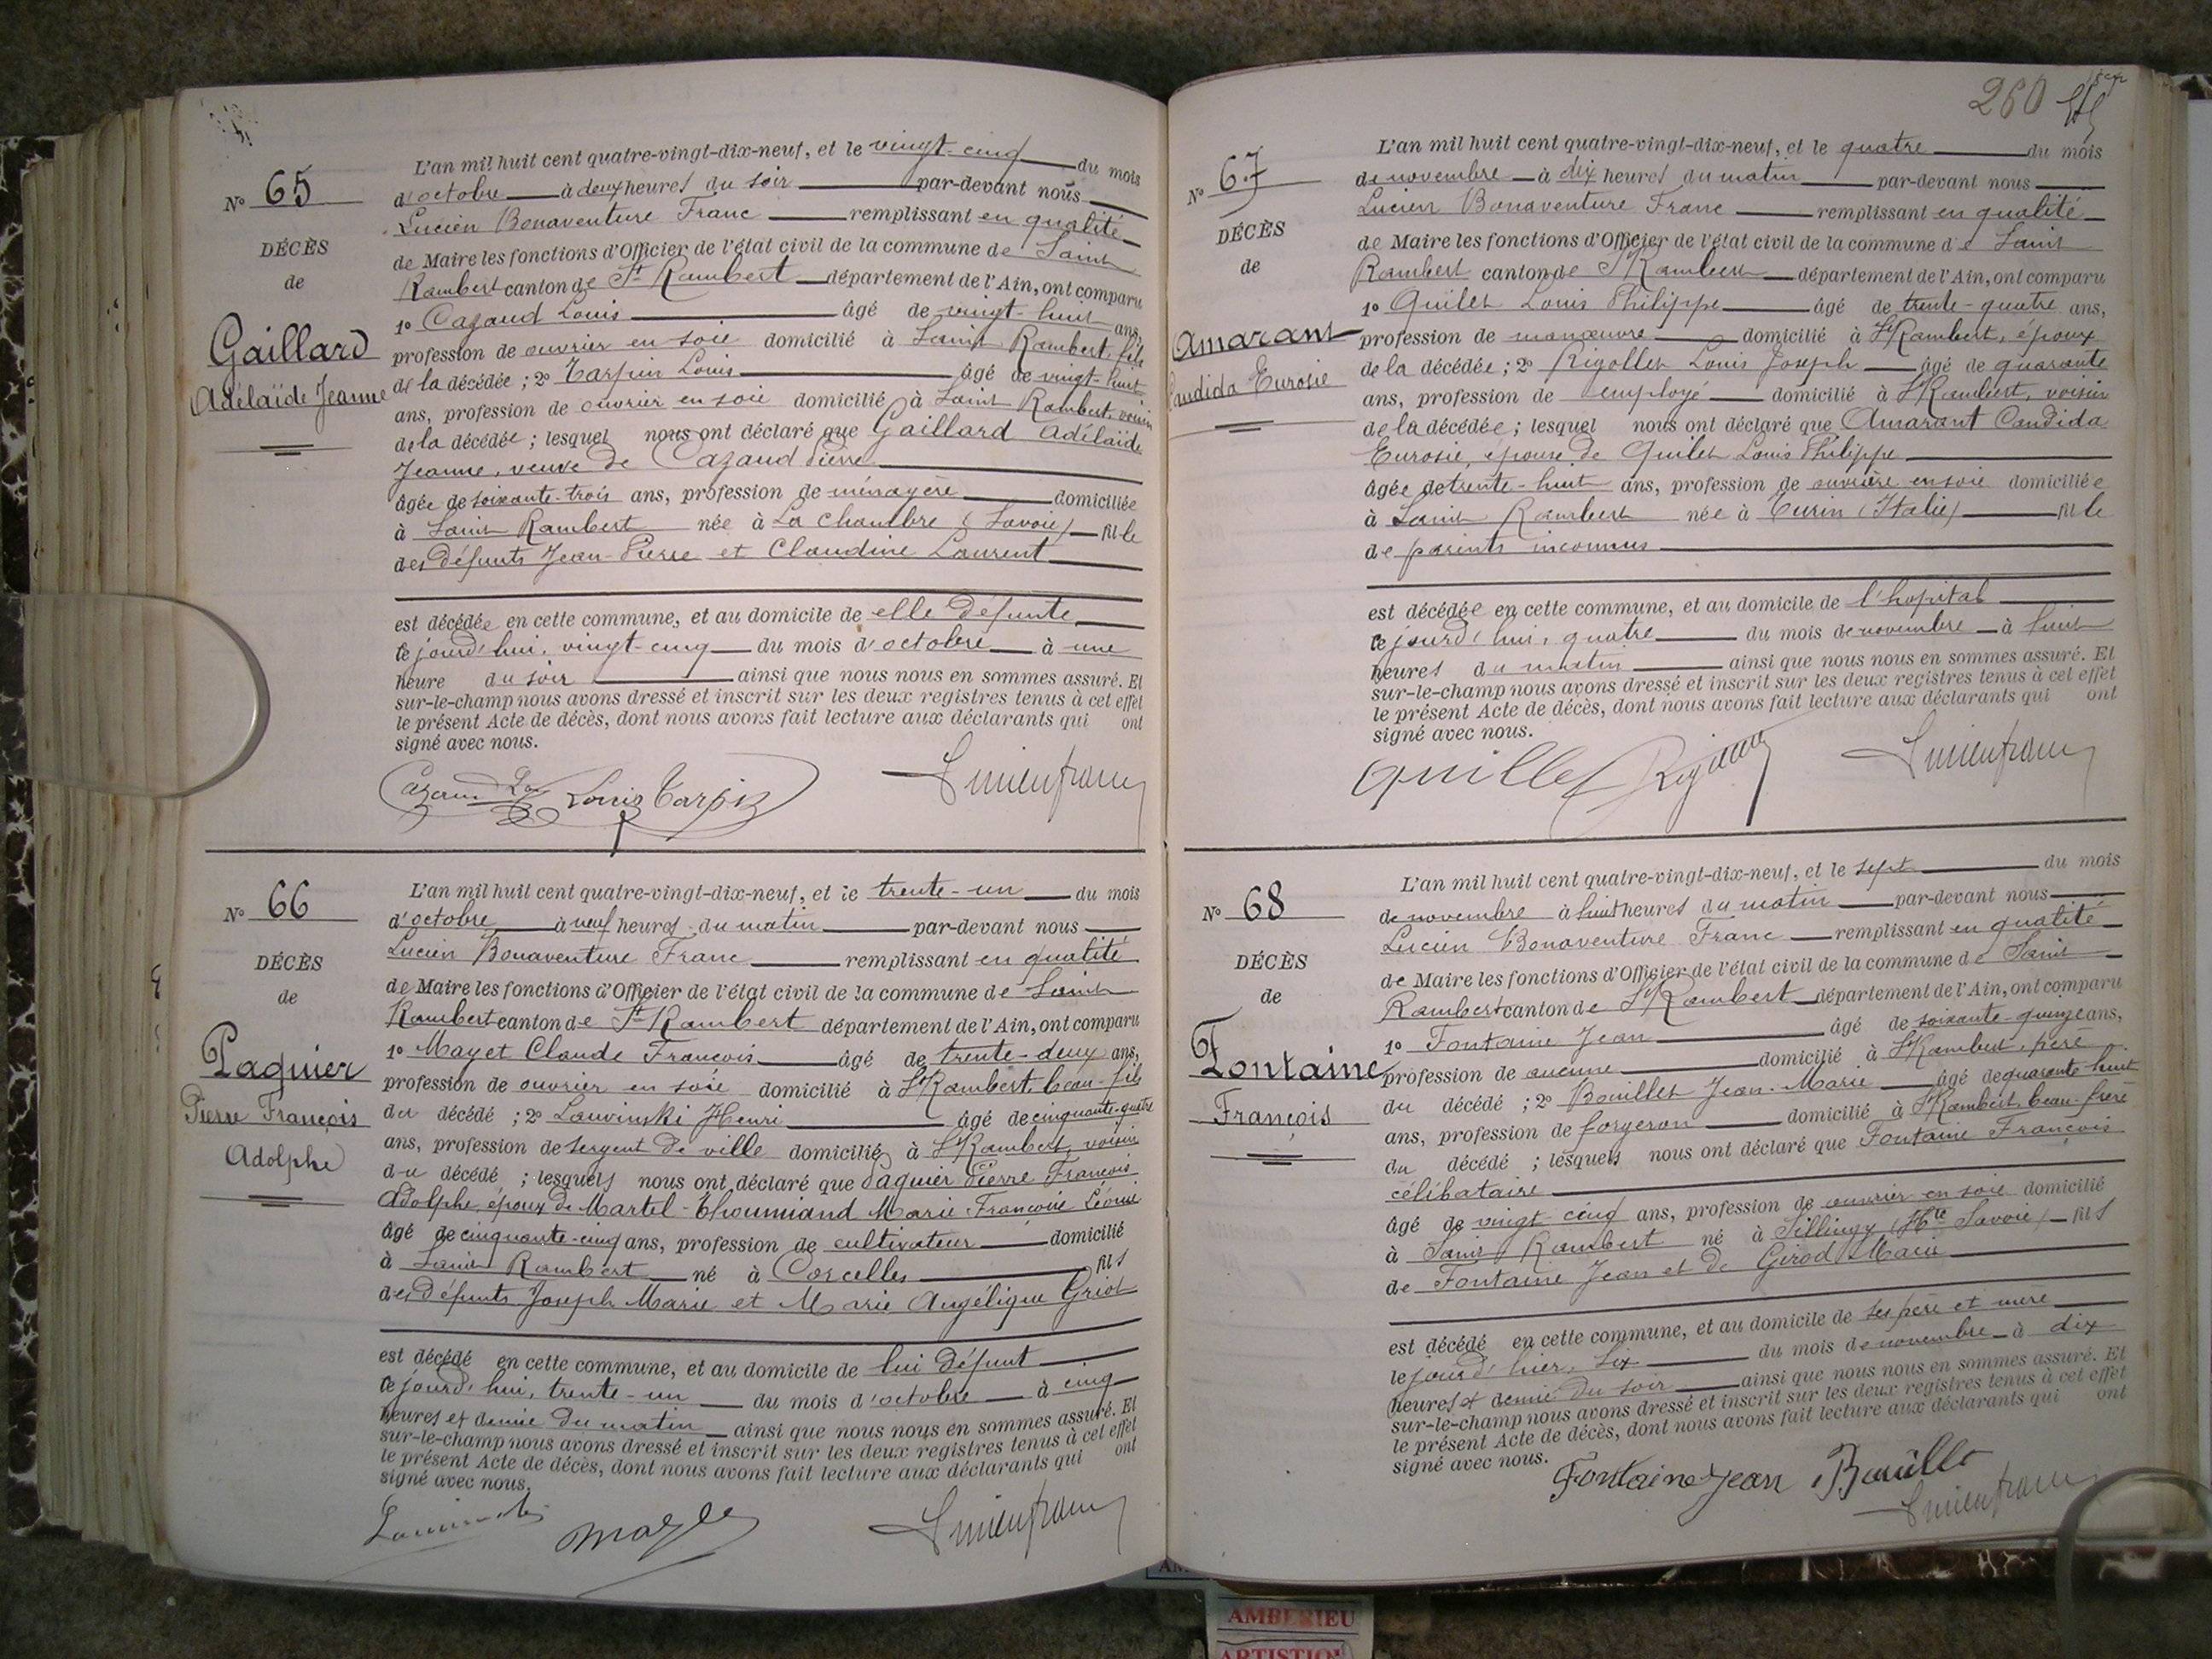 N° 65
DÉCÈS
de
Gaillard
Adélaïde Jeanne
L'an mil huit cent quatre-vingt-dix-neuf, et le vingt-cinq du mois
d'octobre à deux heures du soir par-devant nous
Lucien Bonaventure Franc remplissant en qualité
de Maire les fonctions d'Officier de l'état civil de la commune de Saint
Rambert canton de St Rambert département de l'Ain, ont comparu
1° Cazaud Louis âgé de vingt-huit ans,
profession de ouvrier en soie domicilié à Saint Rambert, fils
de la décédée ; 2° Tarpin Louis âgé de vingt-huit
ans, profession de ouvrier en soie domicilié à Saint Rambert, voisin
de la décédée ; lesquel nous ont déclaré que Gaillard Adélaïde
Jeanne, veuve de Cazaud Pierre
âgée de soixante-trois ans, profession de ménagère domiciliée
à Saint Rambert née à La Chambre (Savoie) fille
des défunts Jean-Pierre et Claudine Laurent
est décédée en cette commune, et au domicile de elle défunte
ce jourd'hui, vingt-cinq du mois d'octobre à une
heure du soir ainsi que nous nous en sommes assuré. Et
sur-le-champ nous avons dressé et inscrit sur les deux registres tenus à cet effet
le présent Acte de décès, dont nous avons fait lecture aux déclarants qui ont
signé avec nous.
Louis Tarpin Lucien franc
N° 66
DÉCÈS
de
Paquier
Pierre François
Adolphe
L'an mil huit cent quatre-vingt-dix-neuf, et le trente-un du mois
d'octobre à neuf heures du matin par-devant nous
Lucien Bonaventure Franc remplissant en qualité
de Maire les fonctions d'Officier de l'état civil de la commune de Saint
Rambert canton de St Rambert département de l'Ain, ont comparu
1° Mayet Claude François âgé de trente-deux ans,
profession de ouvrier en soie domicilié à St Rambert, beau-fils
du décédé ; 2° Louvinski Henri âgé de cinquante-quatre
ans, profession de sergent de ville domicilié à St Rambert, voisin
du décédé ; lesquels nous ont déclaré que Paquier Pierre François
Adolphe, époux de Martel- Marie Françoise Léonie
âgé de cinquante-cinq ans, profession de cultivateur domicilié
à Saint Rambert né à Corcelles fils
des défunts Joseph Marie et Marie Angélique Griot
est décédé en cette commune, et au domicile de lui défunt
ce jourd'hui, trente-un du mois d'octobre à cinq
heures et demie du matin ainsi que nous nous en sommes assuré. Et
sur-le-champ nous avons dressé et inscrit sur les deux registres tenus à cet effet
le présent Acte de décès, dont nous avons fait lecture aux déclarants qui ont
signé avec nous.
Lucien franc
260
N° 67
DÉCÈS
de
Amarant
Candida Eurosie
L'an mil huit cent quatre-vingt-dix-neuf, et le quatre du mois
de novembre à dix heures du matin par-devant nous
Lucien Bonaventure Franc remplissant en qualité
de Maire les fonctions d'Officier de l'état civil de la commune de Saint
Rambert canton de St Rambert département de l'Ain, ont comparu
1° Quilet Louis Philippe âgé de trente-quatre ans,
profession de manœuvre domicilié à St Rambert, époux
de la décédée ; 2° Rigollet Louis Joseph âgé de quarante
ans, profession de employé domicilié à St Rambert, voisin
de la décédée ; lesquel nous ont déclaré que Amarant Candida
Eurosie, épouse de Quilet Louis Philippe
âgée de trente-huit ans, profession de ouvrière en soie domiciliée
à Saint Rambert née à Turin (Italie) fille
de parents inconnus
est décédée en cette commune, et au domicile de l'hopital
ce jourd'hui, quatre du mois de novembre à huit
heures du matin ainsi que nous nous en sommes assuré. Et
sur-le-champ nous avons dressé et inscrit sur les deux registres tenus à cet effet
le présent Acte de décès, dont nous avons fait lecture aux déclarants qui ont
signé avec nous.
Quillet Lucien franc
N° 68
DÉCÈS
de
Fontaine
François
L'an mil huit cent quatre-vingt-dix-neuf, et le sept du mois
de novembre à huit heures du matin par-devant nous
Lucien Bonaventure Franc remplissant en qualité
de Maire les fonctions d'Officier de l'état civil de la commune de Saint
Rambert canton de St Rambert département de l'Ain, ont comparu
1° Fontaine Jean âgé de soixante-quinze ans,
profession de aucune domicilié à St Rambert, père
du décédé ; 2° Bouillet Jean-Marie âgé de quarante huit
ans, profession de forgeron domicilié à St Rambert, beau-frère
du décédé ; lesquels nous ont déclaré que Fontaine François
célibataire
âgé de vingt-cinq ans, profession de ouvrier en soie domicilié
à Saint Rambert né à Sillingy (Hte Savoie) fils
de Fontaine Jean et de Girod Marie
est décédé en cette commune, et au domicile de ses père et mère
le jour d'hier, six du mois de novembre à dix
heures et demie du soir ainsi que nous nous en sommes assuré. Et
sur-le-champ nous avons dressé et inscrit sur les deux registres tenus à cet effet
le présent Acte de décès, dont nous avons fait lecture aux déclarants qui ont
signé avec nous.
Fontaine Jean Bouillet
Lucien franc
AMBERIEU